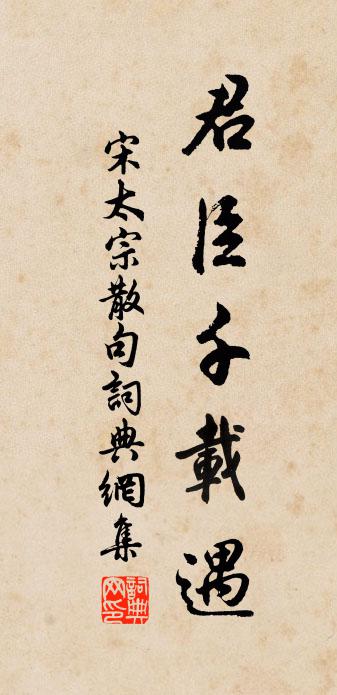 君臣千載遇
宋太宗散句詞典網集
詞典网印